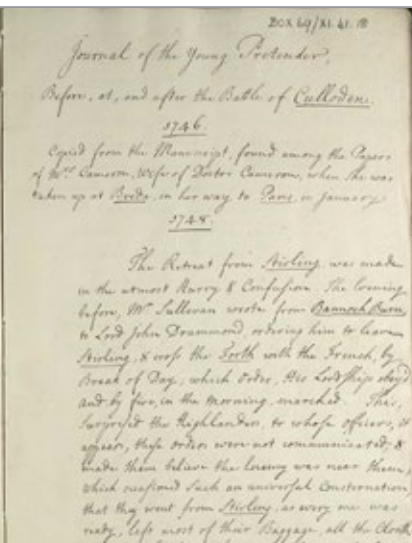 BOX 69/XI.41.18
Journal of the Young Pretender,
Before, at, and after the Battle of Culloden.
1746.
Copied from the Manuscript, found among the Papers
of Mrs Cameron, Wife of Doctor Cameron, when she was
taken up at Breda, in her way to Paris, in January
1748.
The Retreat from Stirling was made
in the utmost Hurry & Confusion. The Evening
before, Mr Sullivan wrote from Bannock Burn,
to Lord John Drummond ordering him to leave
Stirling, & cross the Forth with the French, by
Break of Day; which order, His Lordship obey'd
and by five, in the morning, marched. This,
surprised the Highlanders, to whose officers, it
appears, these orders were not communicated; &
made them believe the Enemy was near them,
which occasioned such an universal Consternation
that they went from Stirling, as every one was
ready, left most of their Baggage, all the Cloath